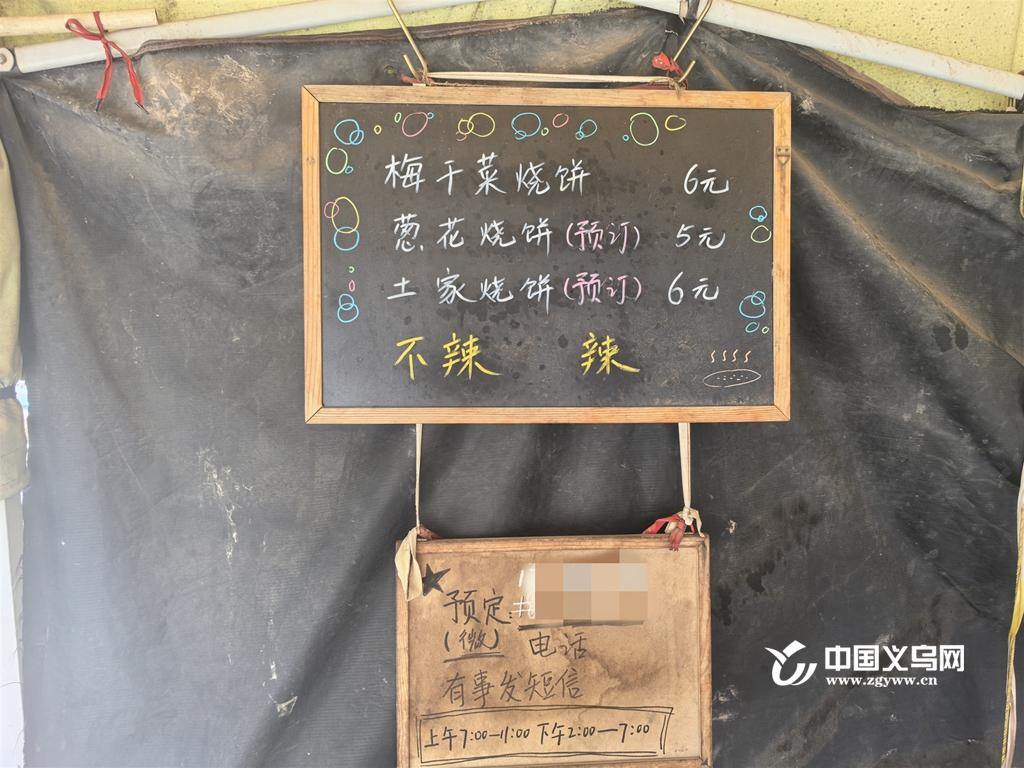 梅干菜烧饼 6元
葱花烧饼(预订) 5元
土家烧饼(预订) 6元
不辣 辣
预定:
(微) 电话
有事发短信
上午7:00—11:00 下午2:00—7:00
中国义乌网
www.zgyww.cn